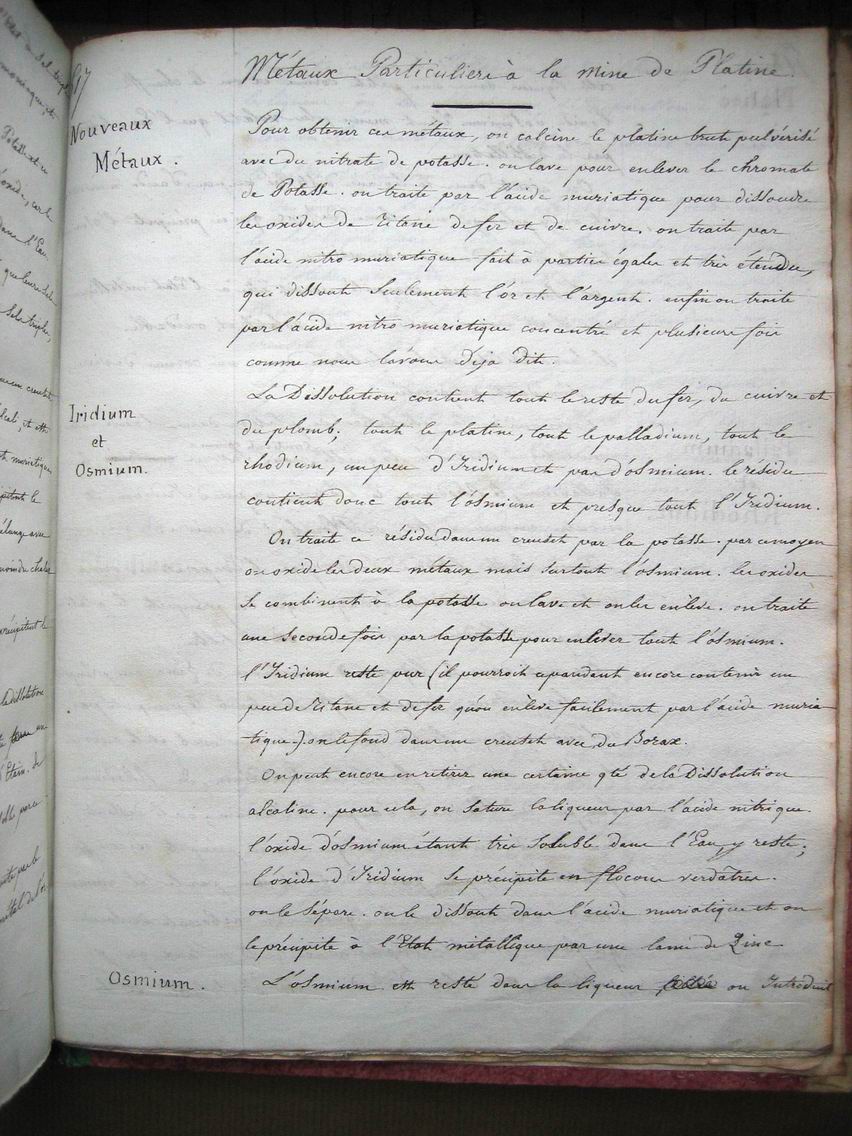 Métaux Particuliers à la mine de Platine.
Nouveaux
Métaux.
Pour obtenir ces métaux, on calcine le platine brut pulvérisé
avec du nitrate de potasse. on lave pour enlever le chromate
de Potasse. on traite par l'acide muriatique pour dissoudre
les oxides de titane de fer et de cuivre. on traite par
l'acide nitro muriatique fait à parties égales et très étendu,
qui dissout seulement l'or et l'argent. enfin on traite
par l'acide nitro muriatique concentré et plusieurs fois
comme nous l'avons déja dit.
Iridium
et
Osmium.
La Dissolution contient tout le reste du fer, du cuivre et
du plomb; tout le platine, tout le palladium, tout le
rhodium, un peu d'Iridium et pas d'osmium. le résidu
contient donc tout l'osmium et presque tout l'Iridium.
On traite ce résidu dans un creuset par la potasse. par ce moyen
on oxide les deux métaux mais surtout l'osmium. les oxides
se combinent à la potasse on lave et on les enlève. on traite
une seconde fois par la potasse pour enlever tout l'osmium.
l'Iridium reste pur (il pourroit cependant encore contenir un
peu de titane et de fer qu'on enlève facilement par l'acide muria-
tique). on le fond dans un creuset avec du Borax.
On peut encore en retirer une certaine qté de la Dissolution
alcaline. pour cela, on sature la liqueur par l'acide nitrique.
l'oxide d'osmium étant très soluble dans l'Eau, y reste;
l'oxide d'Iridium se précipite en flocons verdâtres.
on le sépare. on le dissout dans l'acide muriatique et on
le précipite à l'Etat métallique par une lame de Zinc
Osmium.
L'osmium est resté dans la liqueur on Introduit